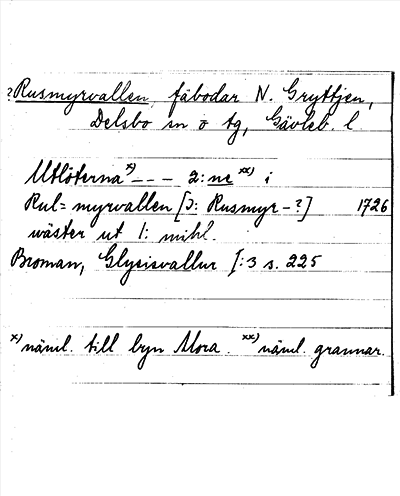 ?Rusmyrvallen, fäbodar N. Gryttjen,
Delsbo sn o tg, Gävleb. l
Utlöterna x) - - - 2:ne xx) i
Rul= myrvallen [Ɔ: Rusmyr-?] 1726
wäster ut 1: mihl.
Broman, Glysisvallur I:3 s. 225
x) näml. till byn Mora. xx) näml. grannar.